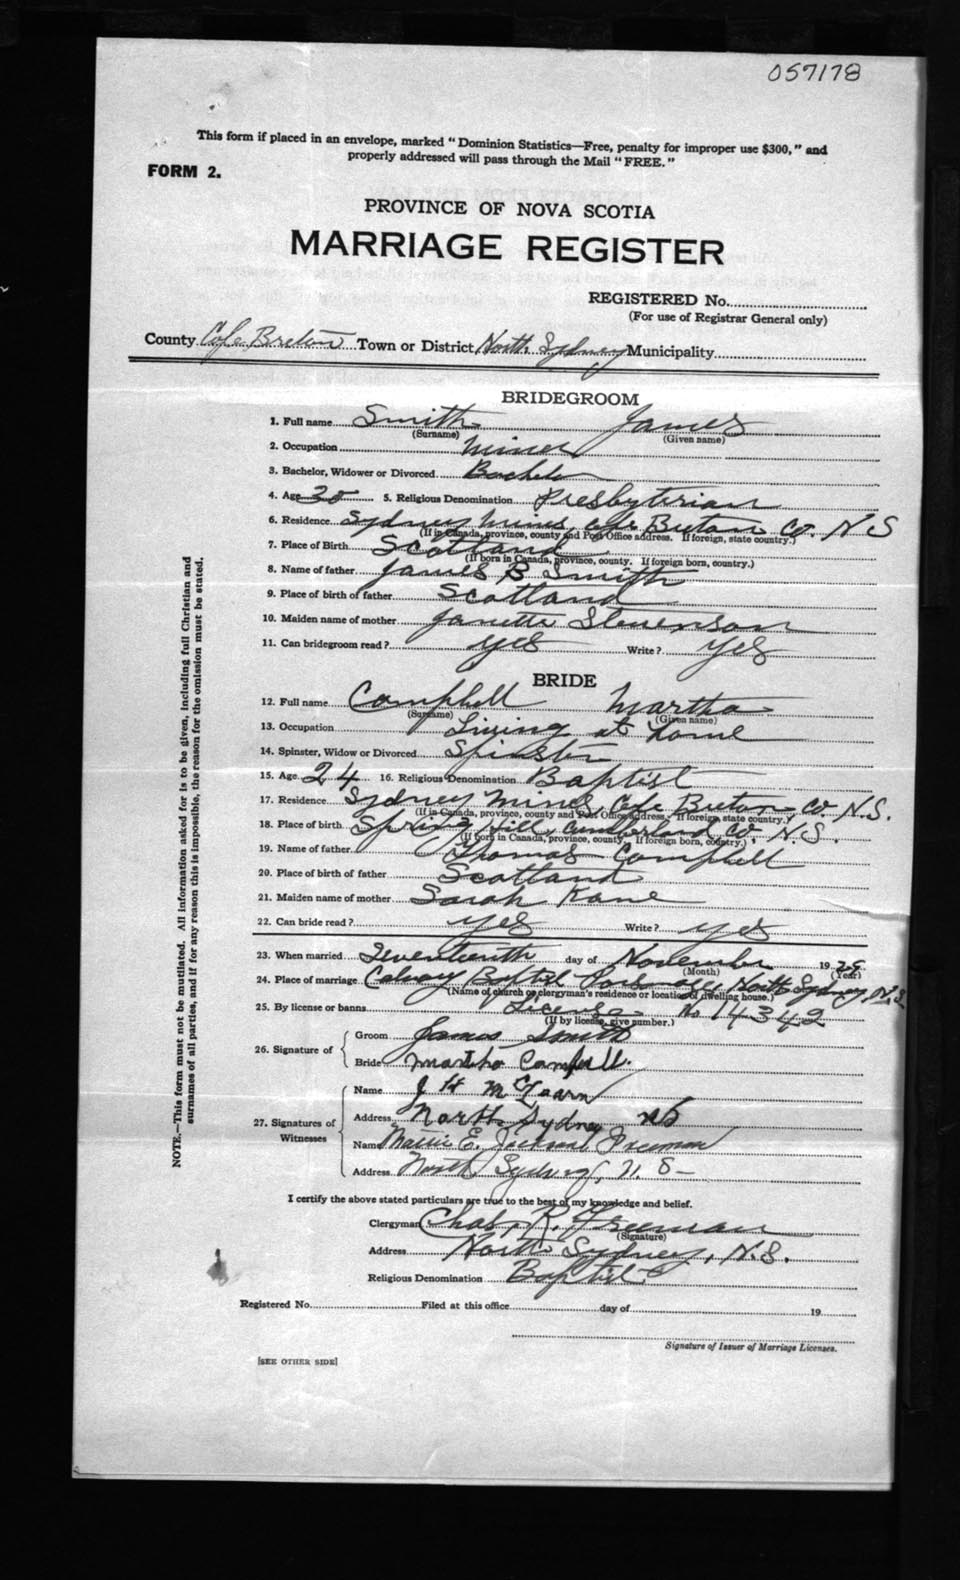 057178
This form if placed in an envelope, marked "Dominion Statistics—Free, penalty for improper use $300," and
properly addressed will pass through the Mail "FREE."
FORM 2.
PROVINCE OF NOVA SCOTIA
MARRIAGE REGISTER
REGISTERED No.
(For use of Registrar General only)
County Cape Breton Town or District North Sydney Municipality
BRIDEGROOM
1. Full name Smith James
(Surname) (Given name)
2. Occupation Miner
3. Bachelor, Widower or Divorced Bachelor
4. Age 5. Religious Denomination Presbyterian
6. Residence Sydney Mines, Cape Breton Co. N S
(If in Canada, province, county and Post Office address. If foreign, state country.)
7. Place of Birth Scotland
(If born in Canada, province, county. If foreign born, country.)
8. Name of father James B Smith
9. Place of birth of father Scotland
10. Maiden name of mother Janette Stevenson
11. Can bridegroom read? yes Write? yes
BRIDE
12. Full name Campbell Martha
(Surname) (Given name)
13. Occupation Living at home
14. Spinster, Widow or Divorced Spinster
15. Age 24 16. Religious Denomination Baptist
17. Residence Sydney Mines, Cape Breton, Co. N.S.
(If in Canada, province, county and Post Office address. If foreign, state country.)
18. Place of birth Spring Hill, Cumberland Co, N.S.
(If born in Canada, province, county. If foreign born, country.)
19. Name of father Thomas Campbell
20. Place of birth of father Scotland
21. Maiden name of mother Sarah Kane
22. Can bride read? yes Write? yes
23. When married Seventeenth day of November 1929
(Month) (Year)
24. Place of marriage Calvary Baptist Parsonage, North Sydney, N.S.
(Name of church or clergyman's residence or location of dwelling house.)
25. By license or banns License No 14342
(If by license, give number.)
26. Signature of Groom James Smith
Bride Martha Campbell
27. Signatures of Witnesses Name J H McLearn
Address North Sydney NS
Name E. Jackson Freeman
Address North Sydney, N.S—
I certify the above stated particulars are true to the best of my knowledge and belief.
Clergyman Chas. R. Freeman
(Signature)
Address North Sydney, N.S.
Religious Denomination Baptist
Registered No. Filed at this office day of 19
Signature of Issuer of Marriage Licenses.
[SEE OTHER SIDE]
NOTE.—This form must not be mutilated. All information asked for is to be given, including full Christian and
surnames of all parties, and if for any reason this is impossible, the reason for the omission must be stated.